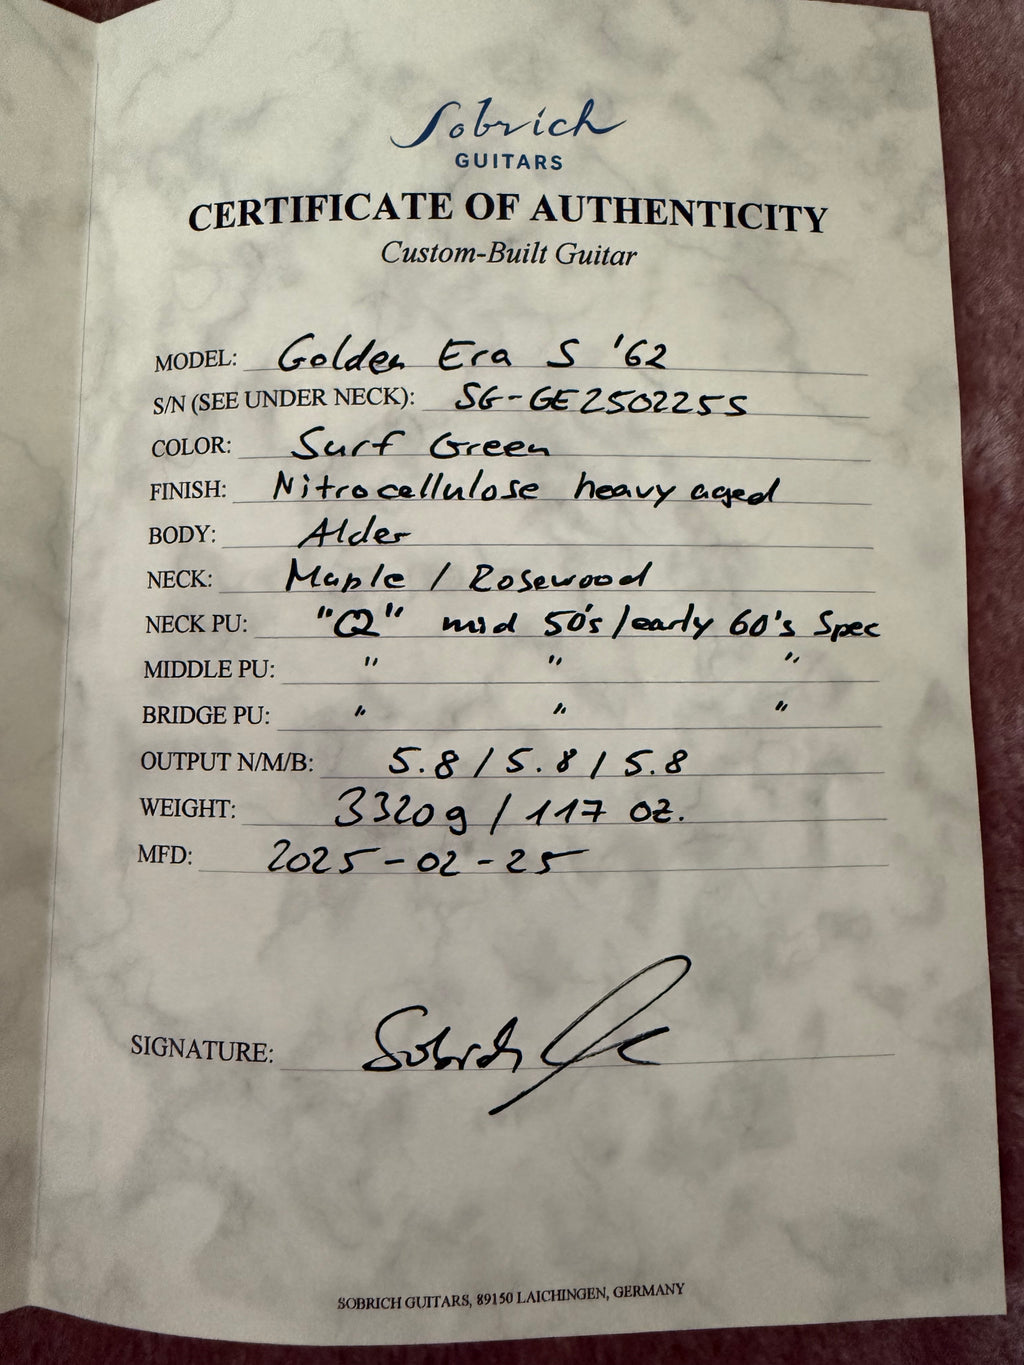 Sobrich
GUITARS
CERTIFICATE OF AUTHENTICITY
Custom-Built Guitar
MODEL: Golden Era S '62
S/N (SEE UNDER NECK): SG-GE250225S
COLOR: Surf Green
FINISH: Nitrocellulose heavy aged
BODY: Alder
NECK: Maple / Rosewood
NECK PU: "CQ" mid 50's/early 60's Spec
MIDDLE PU: " " "
BRIDGE PU: " " "
OUTPUT N/M/B: 5.8 / 5.8 / 5.8
WEIGHT: 3320g / 117 oz.
MFD: 2025-02-25
SIGNATURE: Sobrich
SOBRICH GUITARS, 89150 LAICHINGEN, GERMANY